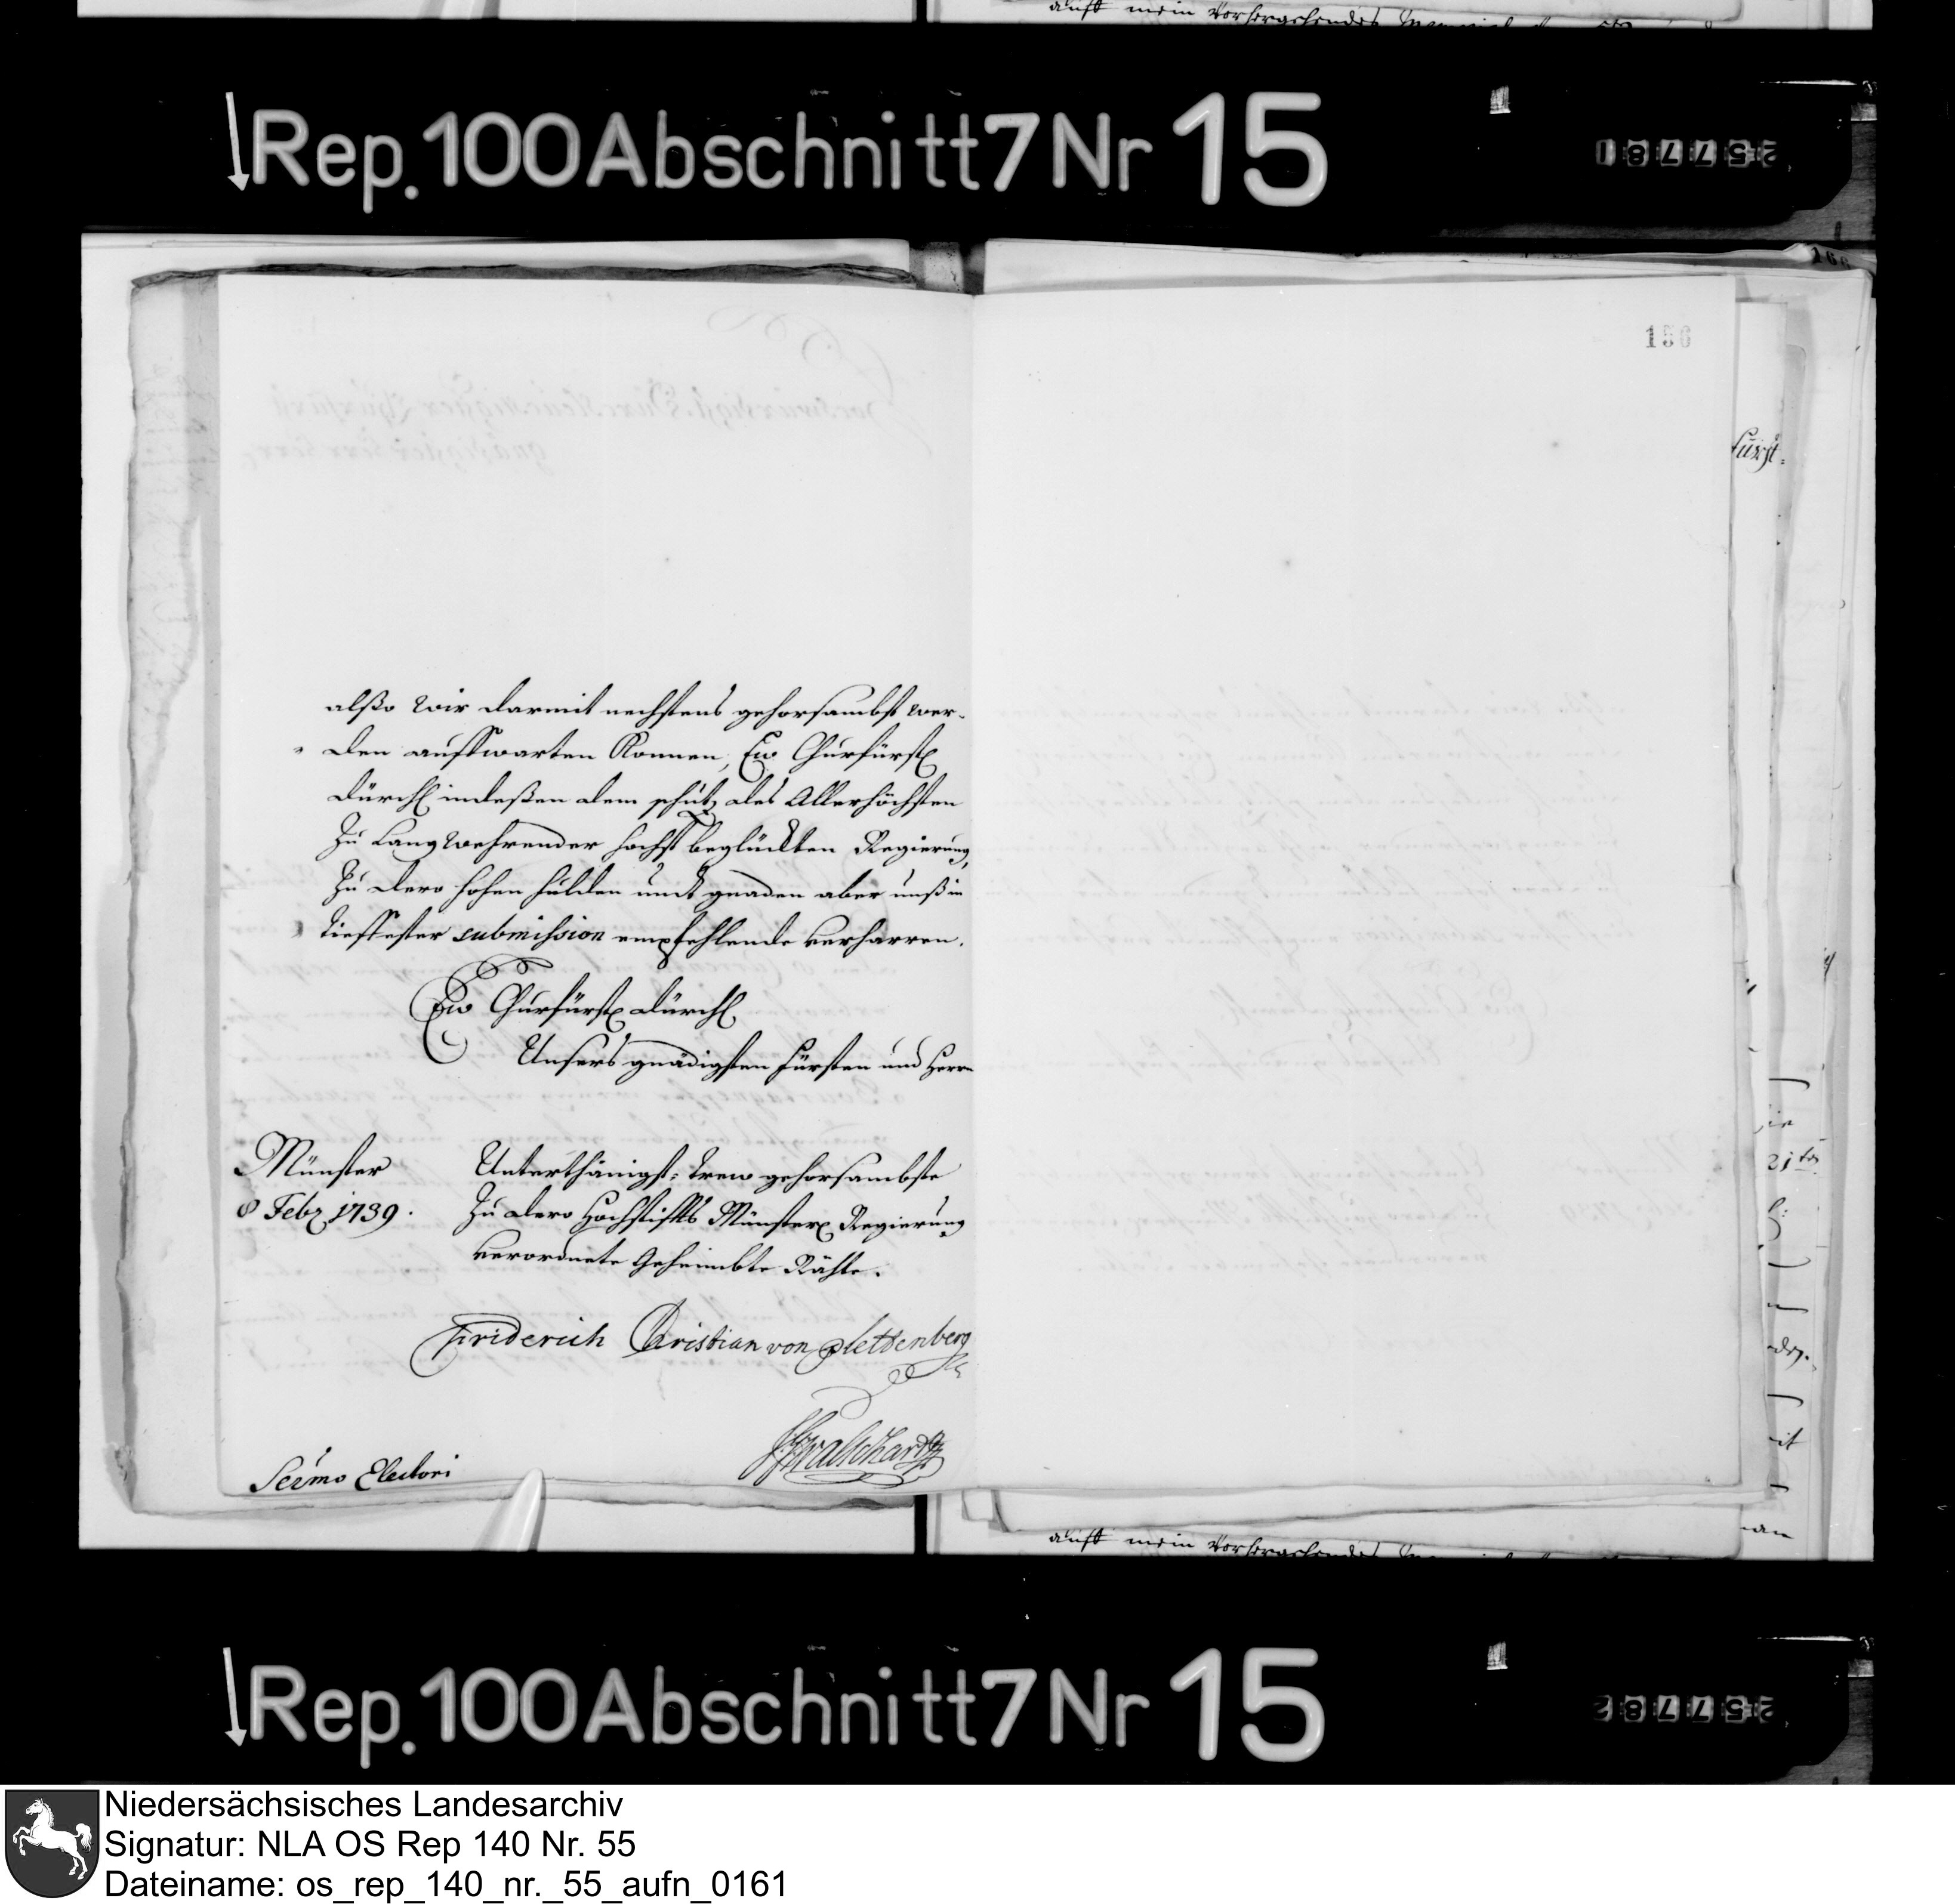 Rep. 100 Abschnitt 7 Nr 15
257781
156
alßo wir darmit nechstens gehorsambst wer-
den auffwarten Konnen, Ew Churfürstl
Dürchl indeßen dem schutz des Allerhöchsten
Zu Langwehrender höchst beglückten Regierung,
Zu dero hohen hulden undt gnaden aber unß in
tieffester submission empfehlende verharren.
Ew Churfürstl Dürchl
Unsers gnädigsten Fürsten und Herrn
Münster
8 Febr 1739.
Unterthänigst: trew gehorsambste
Zu dero Hochstiffts Münster Regierung
verordnete Geheimbte Räthe.
Friderich Christian von Plettenberg
Sermo Electori
auff mein Vorhergehendes
Rep. 100 Abschnitt 7 Nr 15
257782
Niedersächsisches Landesarchiv
Signatur: NLA OS Rep 140 Nr. 55
Dateiname: os_rep_140_nr._55_aufn_0161